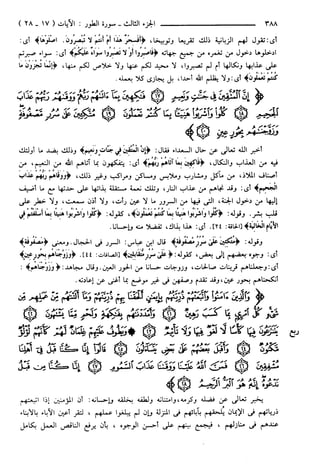 ٣٨٨ الجزء الثالث - سورة الطور : الآيات (١٧ - ٢٨)
أي: تقول لهم الزبانية ذلك تقريعاً وتوبيخاً، ﴿أَفَسِحْرٌ هَٰذَا أَمْ أَنتُمْ لَا تُبْصِرُونَ. اصْلَوْهَا﴾ أي:
ادخلوها دخول من تغمره من جميع جهاته ﴿فَاصْبِرُوا أَوْ لَا تَصْبِرُوا سَوَاءٌ عَلَيْكُمْ﴾ أي: سواء صبرتم
على عذابها ونكالها أم لم تصبروا، لا محيد لكم عنها ولا خلاص لكم منها، ﴿إِنَّمَا تُجْزَوْنَ مَا
كُنتُمْ تَعْمَلُونَ﴾ أي: ولا يظلم الله أحداً، بل يجازي كلا بعمله.
إِنَّ الْمُتَّقِينَ فِي جَنَّاتٍ وَنَعِيمٍ ﴿١٧﴾ فَاكِهِينَ بِمَا آتَاهُمْ رَبُّهُمْ وَوَقَاهُمْ رَبُّهُمْ عَذَابَ
الْجَحِيمِ ﴿١٨﴾ كُلُوا وَاشْرَبُوا هَنِيئًا بِمَا كُنتُمْ تَعْمَلُونَ ﴿١٩﴾ مُتَّكِئِينَ عَلَىٰ سُرُرٍ مَّصْفُوفَةٍ
وَزَوَّجْنَاهُم بِحُورٍ عِينٍ ﴿٢٠﴾
أخبر الله تعالى عن حال السعداء فقال: ﴿إِنَّ الْمُتَّقِينَ فِي جَنَّاتٍ وَنَعِيمٍ﴾ وذلك بضد ما أولئك
فيه من العذاب والنكال، ﴿فَاكِهِينَ بِمَا آتَاهُمْ رَبُّهُمْ﴾ أي: يتفكهون بما آتاهم الله من النعيم، من
أصناف الملاذ، من مآكل ومشارب وملابس ومساكن ومراكب وغير ذلك، ﴿وَوَقَاهُمْ رَبُّهُمْ عَذَابَ
الْجَحِيمِ﴾ أي: وقد نجاهم من عذاب النار، وتلك نعمة مستقلة بذاتها على حدتها مع ما أضيف
إليها من دخول الجنة، التي فيها من السرور ما لا عين رأت، ولا أذن سمعت، ولا خطر على
قلب بشر. وقوله: ﴿كُلُوا وَاشْرَبُوا هَنِيئًا بِمَا كُنتُمْ تَعْمَلُونَ﴾، كقوله: ﴿كُلُوا وَاشْرَبُوا هَنِيئًا بِمَا أَسْلَفْتُمْ فِي
الْأَيَّامِ الْخَالِيَةِ﴾ [الحاقة: ٢٤]. أي: هذا بذاك، تفضلاً منه وإحساناً.
وقوله: ﴿مُتَّكِئِينَ عَلَىٰ سُرُرٍ مَّصْفُوفَةٍ﴾ قال ابن عباس: السرر في الحجال. ومعنى ﴿مَصْفُوفَةٍ﴾
أي: وجوه بعضهم إلى بعض، كقوله: ﴿عَلَىٰ سُرُرٍ مُّتَقَابِلِينَ﴾ [الصافات: ٤٤]. ﴿وَزَوَّجْنَاهُم بِحُورٍ عِينٍ﴾
أي: وجعلناهم قرينات صالحات، وزوجات حساناً من الحور العين. وقال مجاهد: ﴿وَزَوَّجْنَاهُم﴾ :
أنكحناهم بحور عين، وقد تقدم وصفهن في غير موضع بما أغنى عن إعادته.
وَالَّذِينَ آمَنُوا وَاتَّبَعَتْهُمْ ذُرِّيَّتُهُم بِإِيمَانٍ أَلْحَقْنَا بِهِمْ ذُرِّيَّتَهُمْ وَمَا أَلَتْنَاهُم مِّنْ عَمَلِهِم مِّن
شَيْءٍ كُلُّ امْرِئٍ بِمَا كَسَبَ رَهِينٌ ﴿٢١﴾ وَأَمْدَدْنَاهُم بِفَاكِهَةٍ وَلَحْمٍ مِّمَّا يَشْتَهُونَ ﴿٢٢﴾ يَتَنَازَعُونَ
فِيهَا كَأْسًا لَّا لَغْوٌ فِيهَا وَلَا تَأْثِيمٌ ﴿٢٣﴾ وَيَطُوفُ عَلَيْهِمْ غِلْمَانٌ لَّهُمْ كَأَنَّهُمْ لُؤْلُؤٌ
ربع
مَّكْنُونٌ ﴿٢٤﴾ وَأَقْبَلَ بَعْضُهُمْ عَلَىٰ بَعْضٍ يَتَسَاءَلُونَ ﴿٢٥﴾ قَالُوا إِنَّا كُنَّا قَبْلُ فِي أَهْلِنَا
مُشْفِقِينَ ﴿٢٦﴾ فَمَنَّ اللَّهُ عَلَيْنَا وَوَقَانَا عَذَابَ السَّمُومِ ﴿٢٧﴾ إِنَّا كُنَّا مِن قَبْلُ
نَدْعُوهُ إِنَّهُ هُوَ الْبَرُّ الرَّحِيمُ ﴿٢٨﴾
يخبر تعالى عن فضله وكرمه، وامتنانه ولطفه بخلقه وإحسانه: أن المؤمنين إذا اتبعتهم
ذرياتهم في الإيمان يلحقهم بآبائهم في المنزلة وإن لم يبلغوا عملهم ، لتقر أعين الآباء بالأبناء
عندهم في منازلهم ، فيجمع بينهم على أحسن الوجوه ، بأن يرفع الناقص العمل بكامل